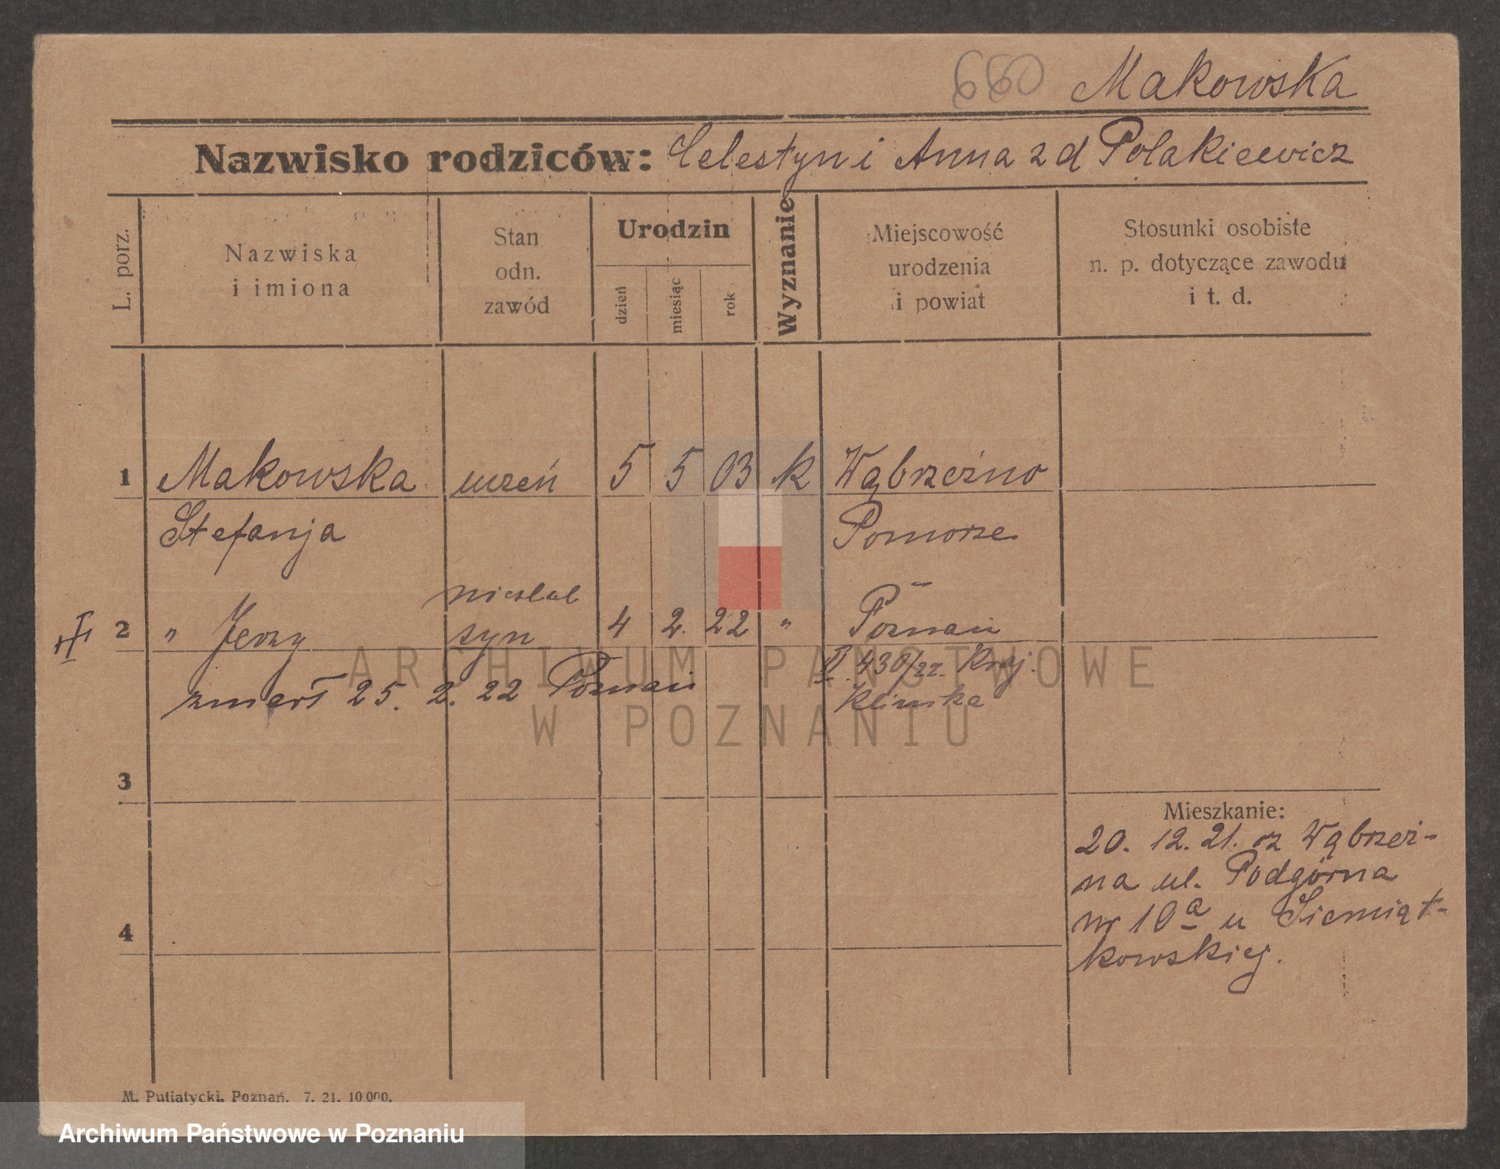 660 Makowska
Nazwisko rodziców: Celestyn i Anna z d Polakiewicz
L. porz.
Nazwiska
i imiona
Stan
odn.
zawód
Urodzin
dzień
miesiąc
rok
Wyznanie
Miejscowość
urodzenia
i powiat
Stosunki osobiste
n. p. dotyczące zawodu
i t. d.
1 Makowska uczeń 5 5 03 k Wąbrzeźno
Stefanja Pomorze
nieslub
2 " Jerzy syn 4 2. 22 " Poznań
II. 430/22. Kraj.
zmarł 25. 2. 22 Poznań
Klinika
3
Mieszkanie:
20. 12. 21. z Wąbrzeź-
na ul. Podgórna
nr 10a u Siemiąt-
kowskiej.
4
M. Putiatycki, Poznań. 7. 21. 10 000.
ARCHIWUM PAŃSTWOWE
W POZNANIU
Archiwum Państwowe w Poznaniu